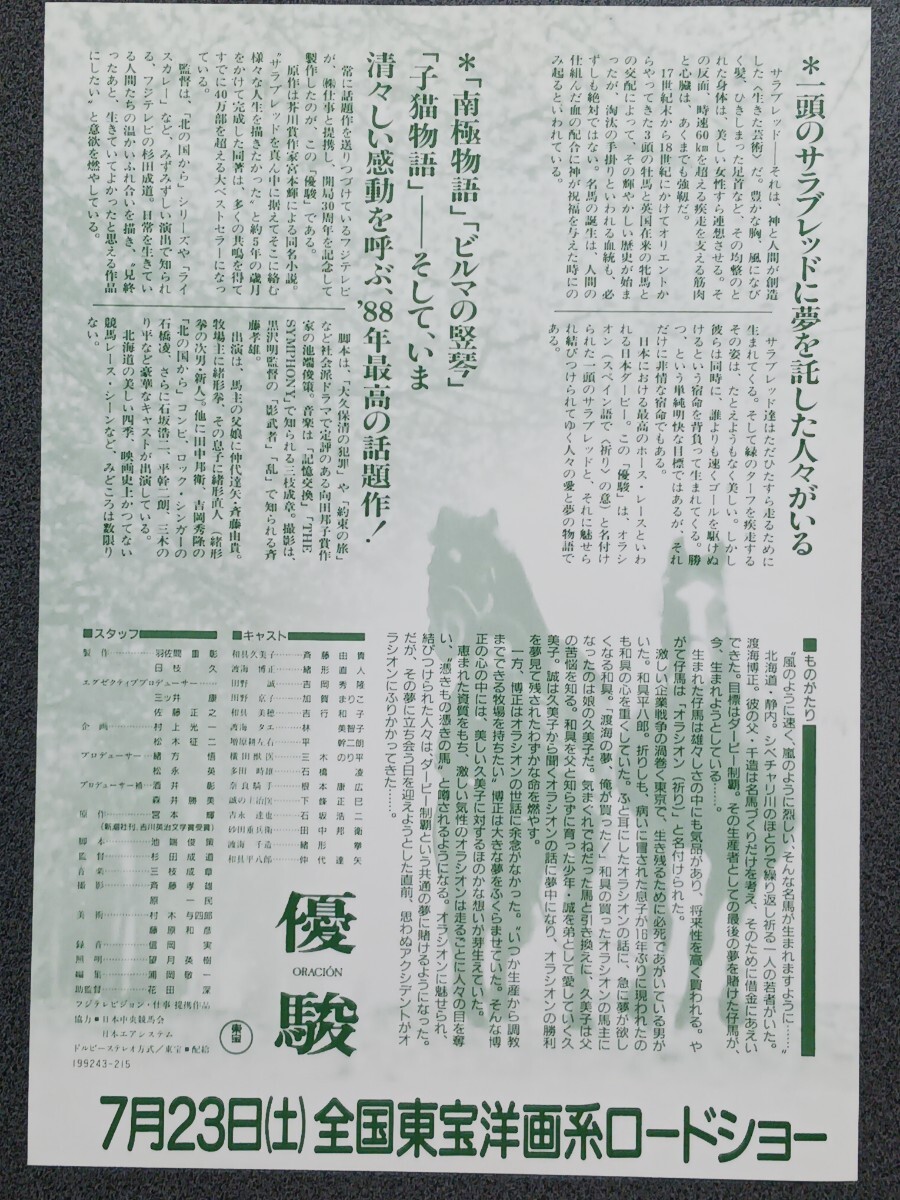 *一頭のサラブレッドに夢を託した人々がいる
サラブレッド——それは、神と人間が創造
した〈生きた芸術〉だ。豊かな胸、風になび
く髪、ひきしまった足首など、その均整のと
れた身体は、美しい女性すら連想させる。そ
の反面、時速60kmを超える疾走を支える筋肉
と心臓は、あくまでも強靭だ。
17世紀末から18世紀にかけてオリエントか
らやってきた3頭の牡馬と英国在来の牝馬と
の交配によって、その輝やかしい歴史が始ま
ったが、淘汰の手掛りといわれる血統も、必
ずしも絶対ではない。名馬の誕生は、人間の
仕組んだ血の配合に神が祝福を与えた時にの
み起るといわれている。
サラブレッド達はただひたすら走るために
生まれてくる。そして緑のターフを疾走する
その姿は、たとえようもなく美しい。しかし
彼らは同時に、誰よりも速くゴールを駆けぬ
けるという宿命を背負って生まれてくる。勝
つ、という単純明快な目標ではあるが、それ
だけに非情な宿命でもある。
日本における最高のホース・レースといわ
れる日本ダービー。この「優駿」は、オラシ
オン(スペイン語で〈祈り〉の意)と名付け
られた一頭のサラブレッドと、それに魅せら
れ結びつけられてゆく人々の愛と夢の物語で
ある。
*「南極物語」「ビルマの竪琴」
「子猫物語」——そして、いま
清々しい感動を呼ぶ、'88年最高の話題作!
常に話題作を送りつづけているフジテレビ
が、㈱仕事と提携し、開局30周年を記念して
製作したのが、この「優駿」である。
原作は芥川賞作家宮本輝による同名小説。
〝サラブレッドを真ん中に据えてそこに絡む
様々な人生を描きたかった〟と約5年の歳月
をかけて完成した同著は、多くの共鳴を得て
すでに40万部を超える大ベストセラーになっ
ている。
監督は、「北の国から」シリーズや「ライ
スカレー」など、みずみずしい演出で知られ
る、フジテレビの杉田成道。日常を生きてい
る人間たちの温かいふれ合いを描き、〝見終
ったあと、生きていてよかったと思える作品
にしたい〟と意欲を燃やしている。
脚本は、「大久保清の犯罪」や「約束の旅」
など社会派ドラマで定評のある向田邦子賞作
家の池端俊策。音楽は「記憶交換」「THE
SYMPHONY」で知られる三枝成章。撮影は、
黒沢明監督の「影武者」「乱」で知られる斉
藤孝雄。
出演は、馬主の父娘に仲代達矢・斉藤由貴。
牧場主に緒形拳、その息子に緒形直人(緒形
拳の次男・新人)。他に田中邦衛、吉岡秀隆の
「北の国から」コンビ、ロック・シンガーの
石橋凌、さらに石坂浩二、平幹二朗、三木の
り平など豪華なキャストが出演している。
北海道の美しい四季、映画史上かつてない
競馬レース・シーンなど、みどころは数限り
ない。
■ものがたり
〝風のように速く、嵐のように烈しい、そんな名馬が生まれますように……〟
北海道・静内。シベチャリ川のほとりで繰り返し祈る一人の若者がいた。
渡海博正。彼の父・千造は名馬づくりだけを考え、そのために借金にあえい
できた。目標はダービー制覇。その生産者としての最後の夢を賭けた仔馬が、
今、生まれようとしている……。
生まれた仔馬は雄々しさの中にも気品があり、将来性を高く買われる。や
がて仔馬は「オラシオン(祈り)」と名付けられた。
激しい企業戦争の渦巻く東京で、生き残るために必死であがいている男が
いた。和具平八郎。折りしも、病いに冒された息子が16年ぶりに現われたの
も和具の心を重くしていた。ふと耳にしたオラシオンの話に、急に夢が欲し
くなる和具。〝渡海の夢、俺が買った!〟和具の買ったオラシオンの馬主に
なったのは娘の久美子だ。気まぐれでねだった馬と引き換えに、久美子は父
の苦悩を知る。和具を父と知らずに育った少年・誠を弟として愛していく久
美子。誠は久美子から聞くオラシオンの話に夢中になり、オラシオンの勝利
を夢見て残されたわずかな命を燃やす。
一方、博正はオラシオンの世話に余念がなかった。〝いつか生産から調教
までできる牧場を持ちたい〟博正は大きな夢をふくらませていた。そんな博
正の心の中には、美しい久美子に対するほのかな想いが芽生えていた。
恵まれた資質をもち、激しい気性のオラシオンは走るごとに人々の目を奪
い、〝憑きもの憑きの馬〟と噂されるようになる。オラシオンに魅せられ、
結びつけられた人々は、ダービー制覇という共通の夢に賭けるようになった。
だが、その夢に立ち会う日を迎えようとした直前、思わぬアクシデントがオ
ラシオンにふりかかってきた……。
■キャスト
和具久美子………斉藤由貴
渡海博正………緒形直人
田野誠………吉岡秀隆
田野京子………加賀まりこ
和具美穂………吉行和子
渡海タエ………林美智子
増原耕左右………平幹二朗
横田獣医………三木のり平
多田時雄………石橋凌
奈良騎手………根本康広
誠の主治医………下條正巳
吉永達也………石坂浩二
砂田重兵衛………田中邦衛
渡海千造………緒形拳
和具平八郎………仲代達矢
■スタッフ
製作………羽佐間重彰
日枝久
エグゼクティブプロデューサー………
三ツ井康
佐藤正之
企画………村上光一
松木征二
プロデューサー………緒方悟
松永英
プロデューサー補………酒井彰
森井勝美
原作………宮本輝
(新潮社刊、吉川英治文学賞受賞)
脚本………池端俊策
監督………杉田成道
音楽………三枝成章
撮影………斉藤孝雄
原一民
美術………村木与四郎
藤原和彦
録音………信岡実
照明………望月英樹
編集………浦岡敬一
助監督………花田深
フジテレビジョン・仕事 提携作品
協力■日本中央競馬会
日本エアシステム
ドルビーステレオ方式/東宝■配給
199243-215
優駿
ORACIÓN
東宝
7月23日(土)全国東宝洋画系ロードショー